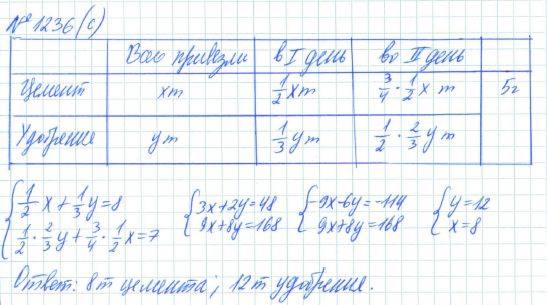 № 1236 (с)
Всего привезли | в I день | во II день
Цемент | xт | 1/2 xт | 3/4 · 1/2 x т | 5г
Удобрение | yт | 1/3 yт | 1/2 · 2/3 y т
{ 1/2 x + 1/3 y = 8 { 3x + 2y = 48 { -9x - 6y = -114 { y = 12
1/2 · 2/3 y + 3/4 · 1/2 x = 7 9x + 8y = 168 9x + 8y = 168 x = 8
Ответ: 8 т цемента; 12 т удобрение.